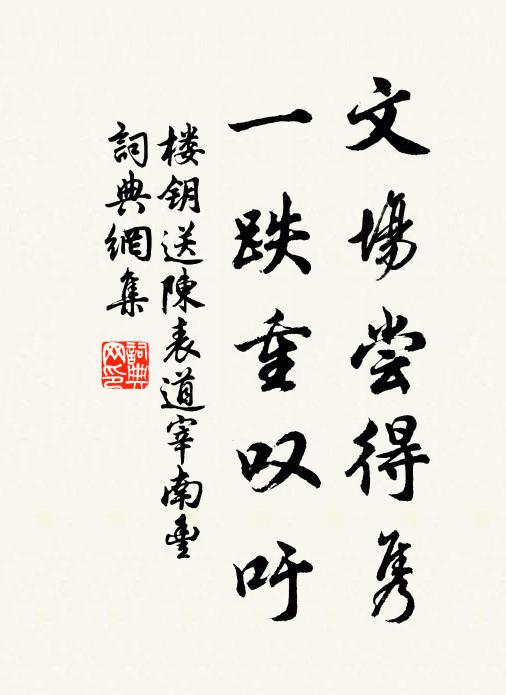 文場尝得隽
一跌重叹吁
楼钥送陳表道宰南豐
詞典網集
詞典
网印